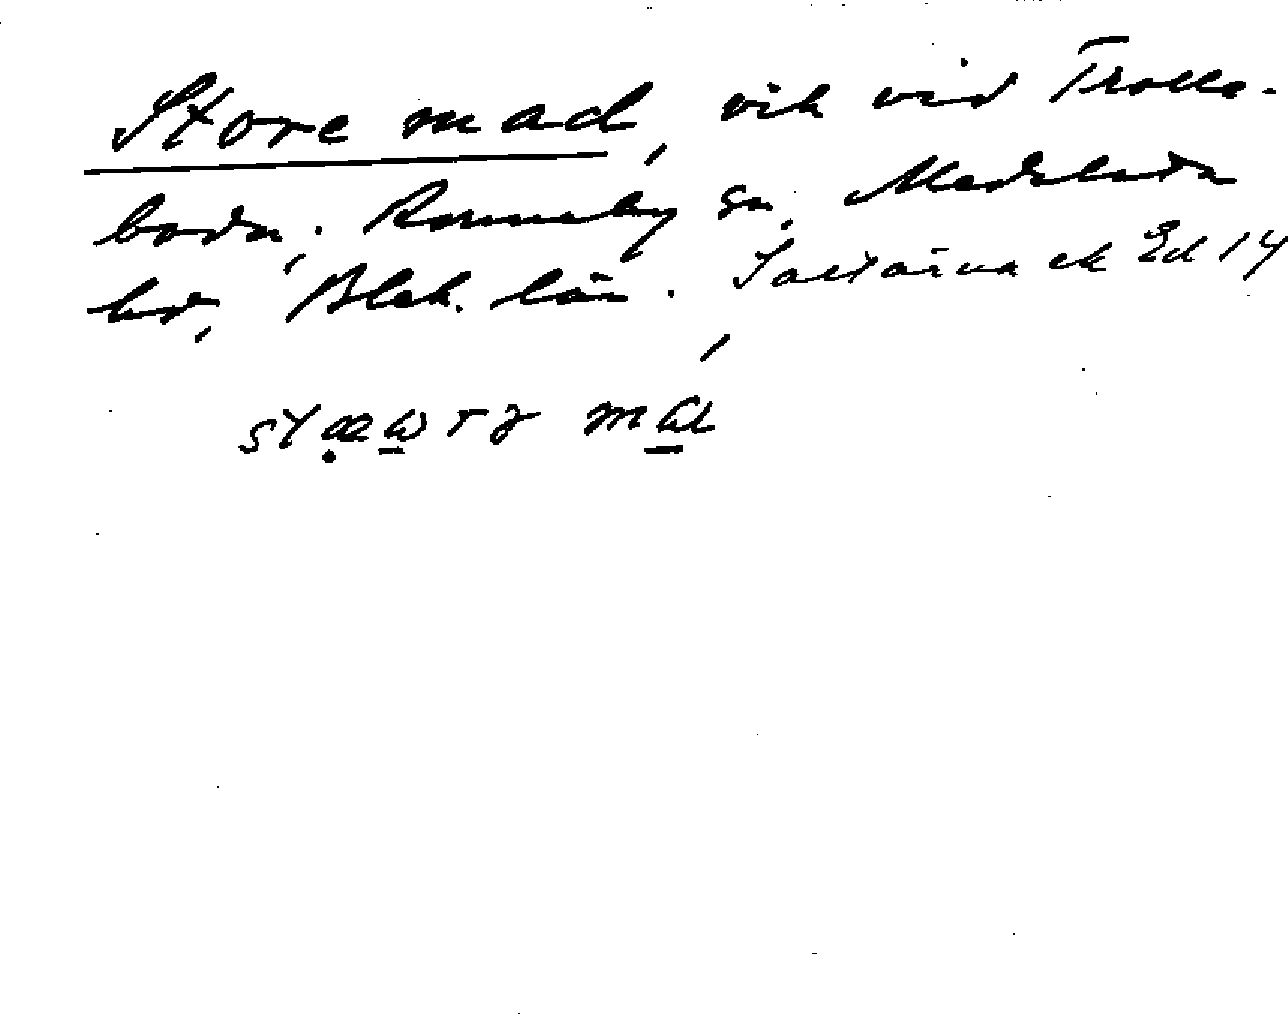 Store mad, vik vid Trolle-
boda, Ronneby sn, Medelsta
hd, Blek. län. Saltärna ek Ed 14